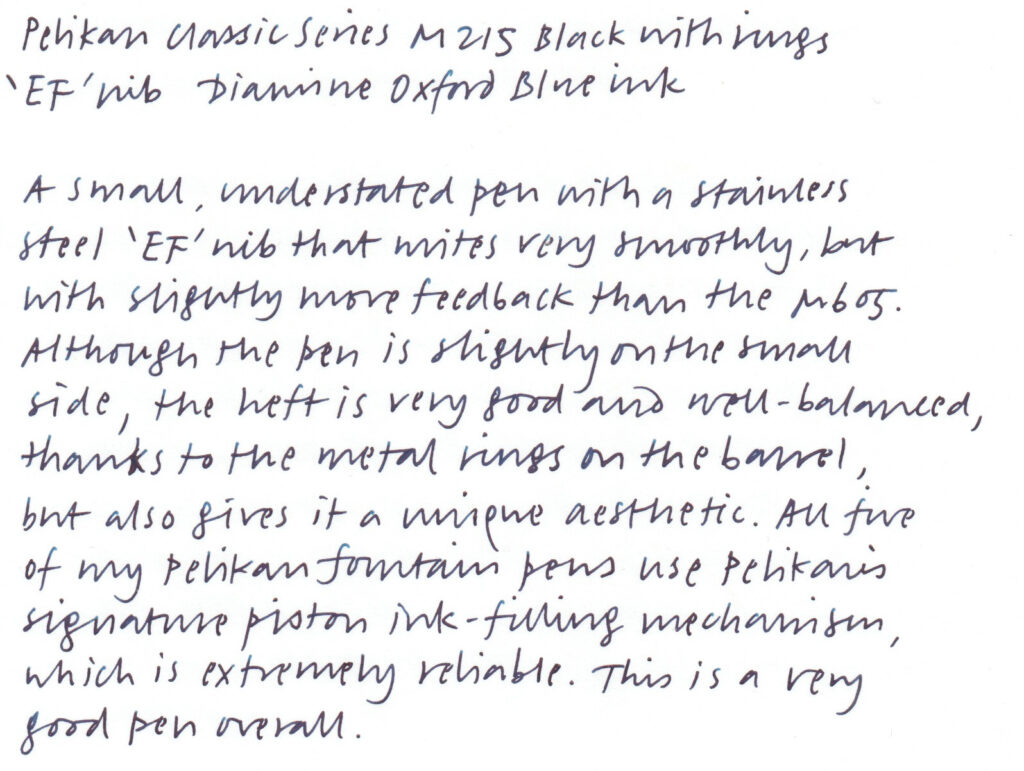 Pelikan Classic Series M215 Black with rings
'EF' nib Diamine Oxford Blue ink
A small, understated pen with a stainless
steel 'EF' nib that writes very smoothly, but
with slightly more feedback than the M605.
Although the pen is slightly on the small
side, the heft is very good and well-balanced,
thanks to the metal rings on the barrel,
but also gives it a unique aesthetic. All five
of my Pelikan fountain pens use Pelikan's
signature piston ink-filling mechanism,
which is extremely reliable. This is a very
good pen overall.